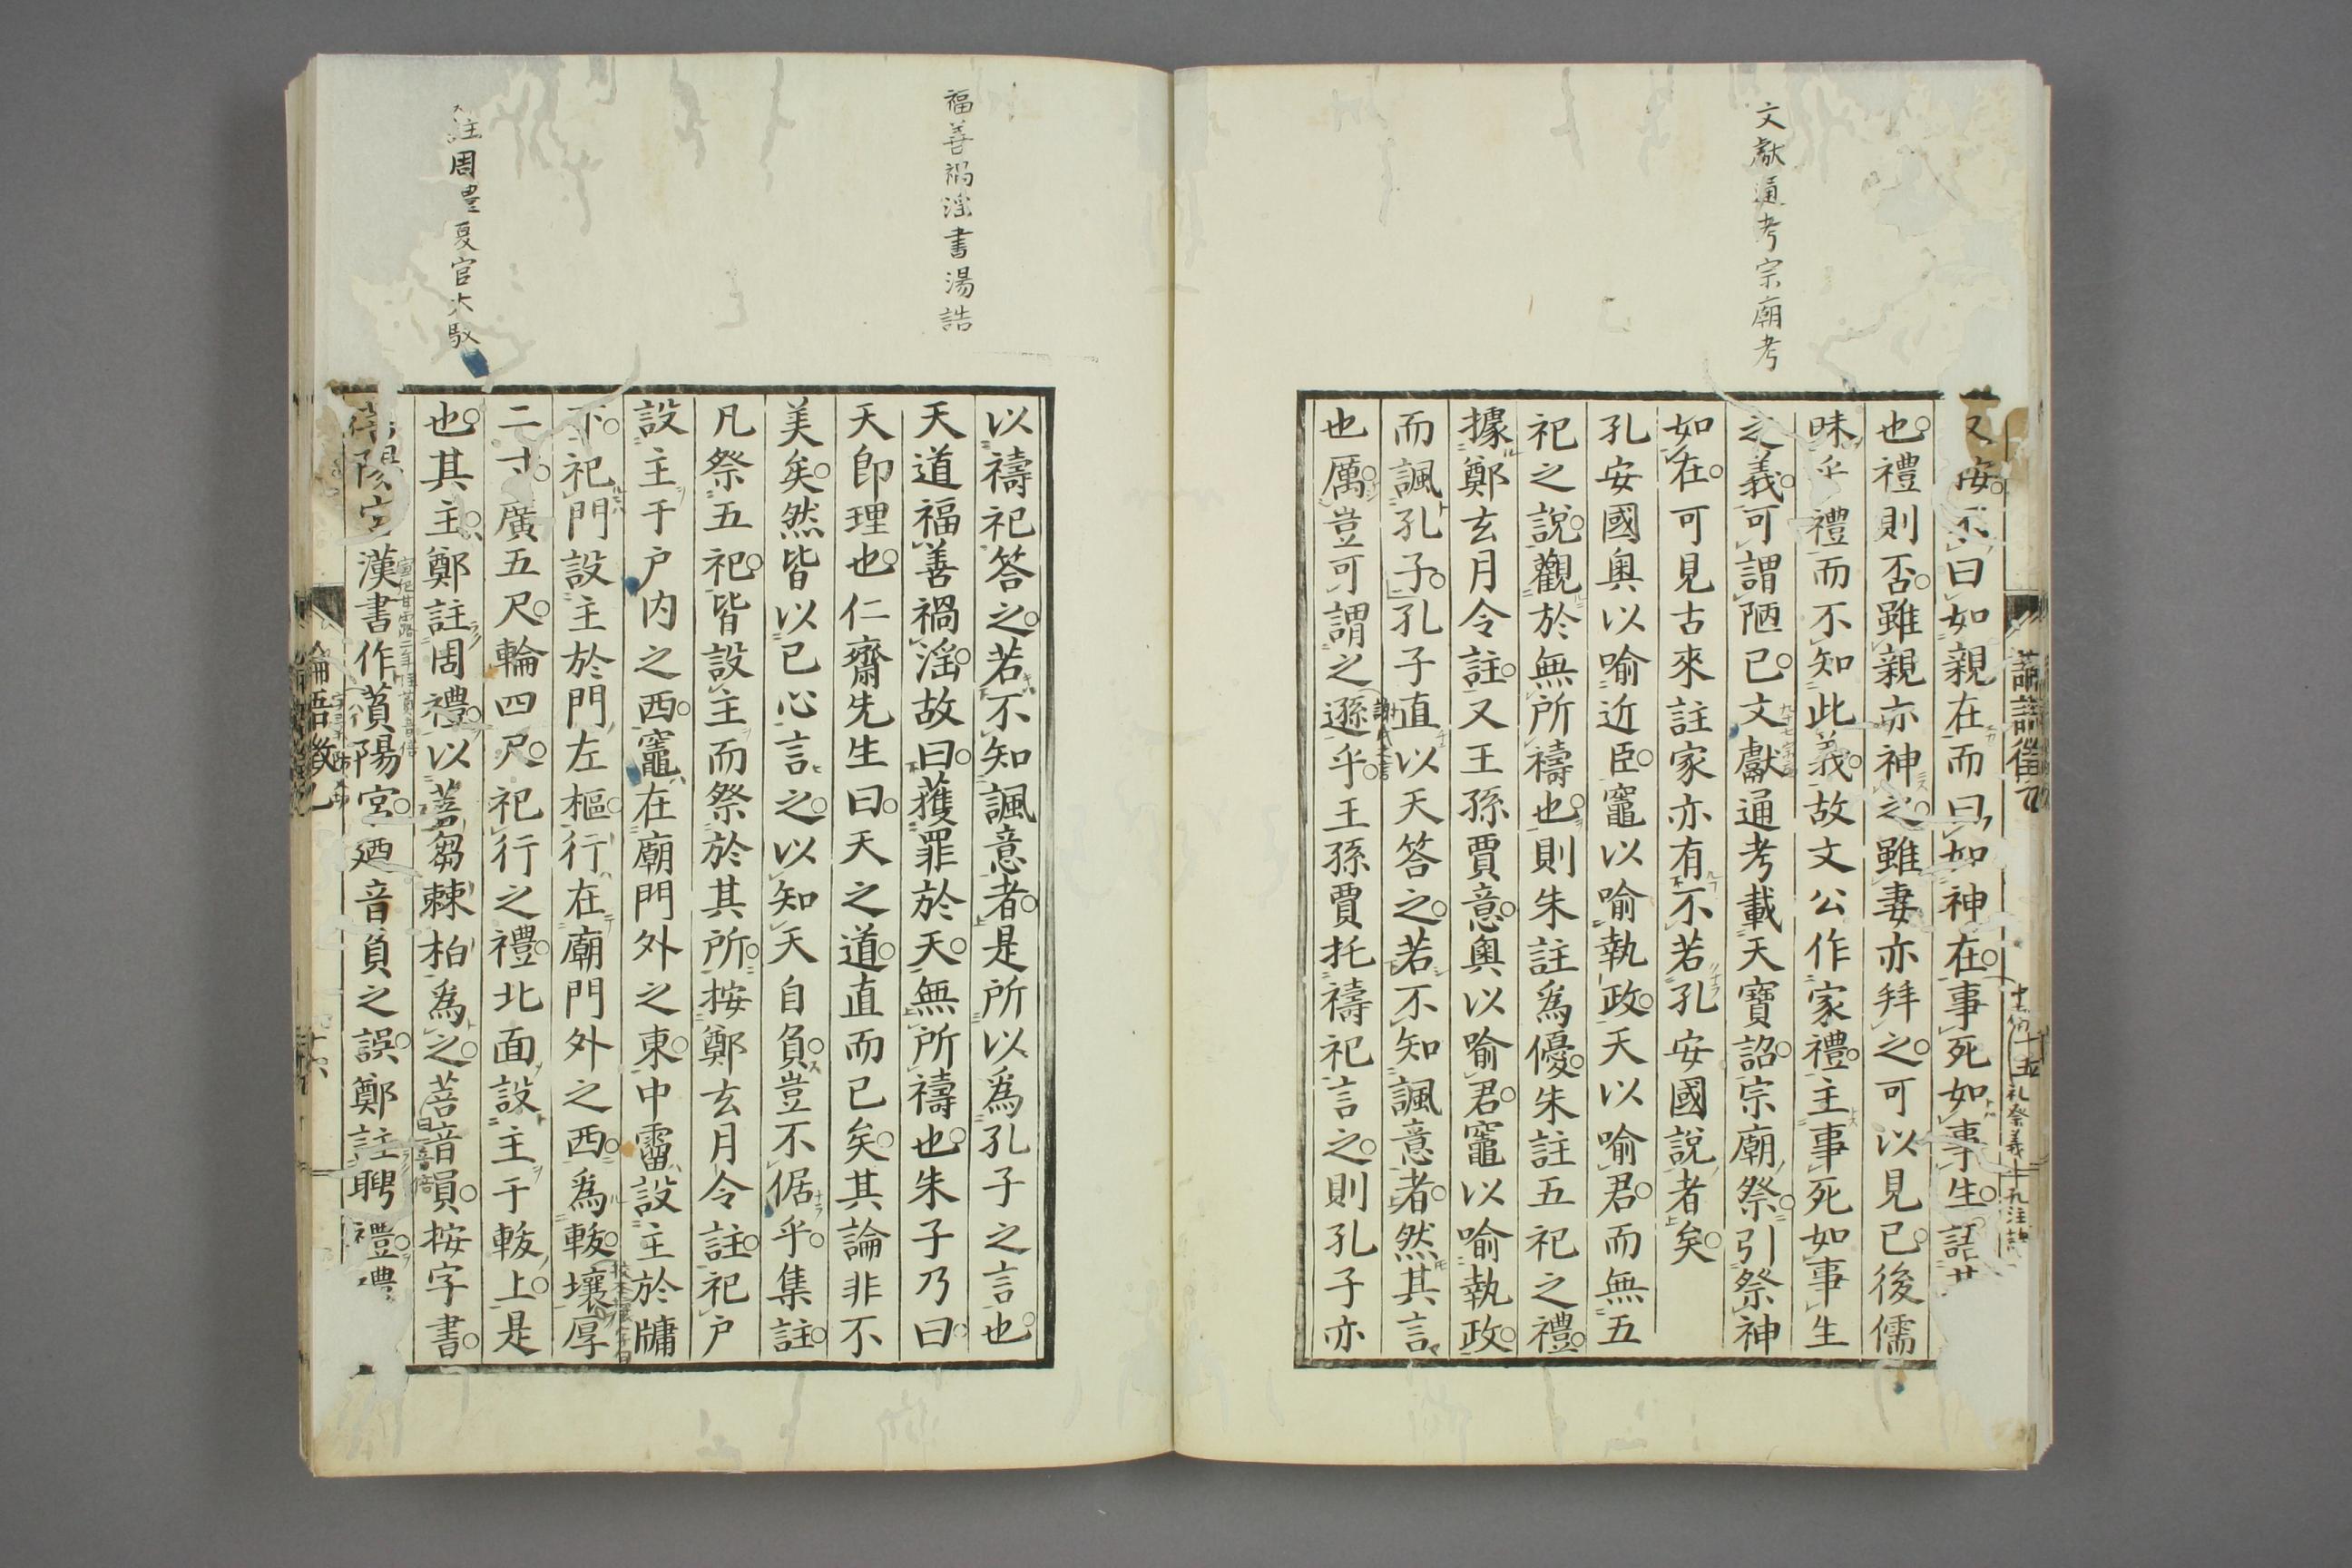 文獻通考宗廟考
又按不曰如親在而曰如神在事死如事生語
也禮則否雖親亦神之雖妻亦拜之可以見已後儒
昧乎禮而不知此義故文公作家禮主事死如事生
之義可謂陋已文獻通考載天寶詔宗廟祭引祭神
如在可見古來註家亦有不若孔安國說者矣
孔安國奧以喻近臣竈以喻執政天以喻君而無五
祀之說觀於無所禱也則朱註為優朱註五祀之禮
據鄭玄月令註又王孫賈意奧以喻君竈以喻執政
而諷孔子孔子直以天答之若不知諷意者然其言
也厲豈可謂之遜乎王孫賈托禱祀言之則孔子亦
福善禍淫書湯誥
註周豊夏官大馭
以禱祀答之若不知諷意者是所以為孔子之言也
天道福善禍淫故曰獲罪於天無所禱也朱子乃曰
天即理也仁齋先生曰天之道直而已矣其論非不
美矣然皆以己心言之以知天自負豈不倨乎集註
凡祭五祀皆設主而祭於其所按鄭玄月令註祀戶
設主于戶內之西竈在廟門外之東中霤設主於牖
下祀門設主於門左樞行在廟門外之西為軷壤厚
二寸廣五尺輪四尺祀行之禮北面設主于軷上是
也其主鄭註周禮以菩芻棘柏為之菩音員按字書
漢書作萯陽宮廼音負之誤鄭註聘禮禮
論語徵乙